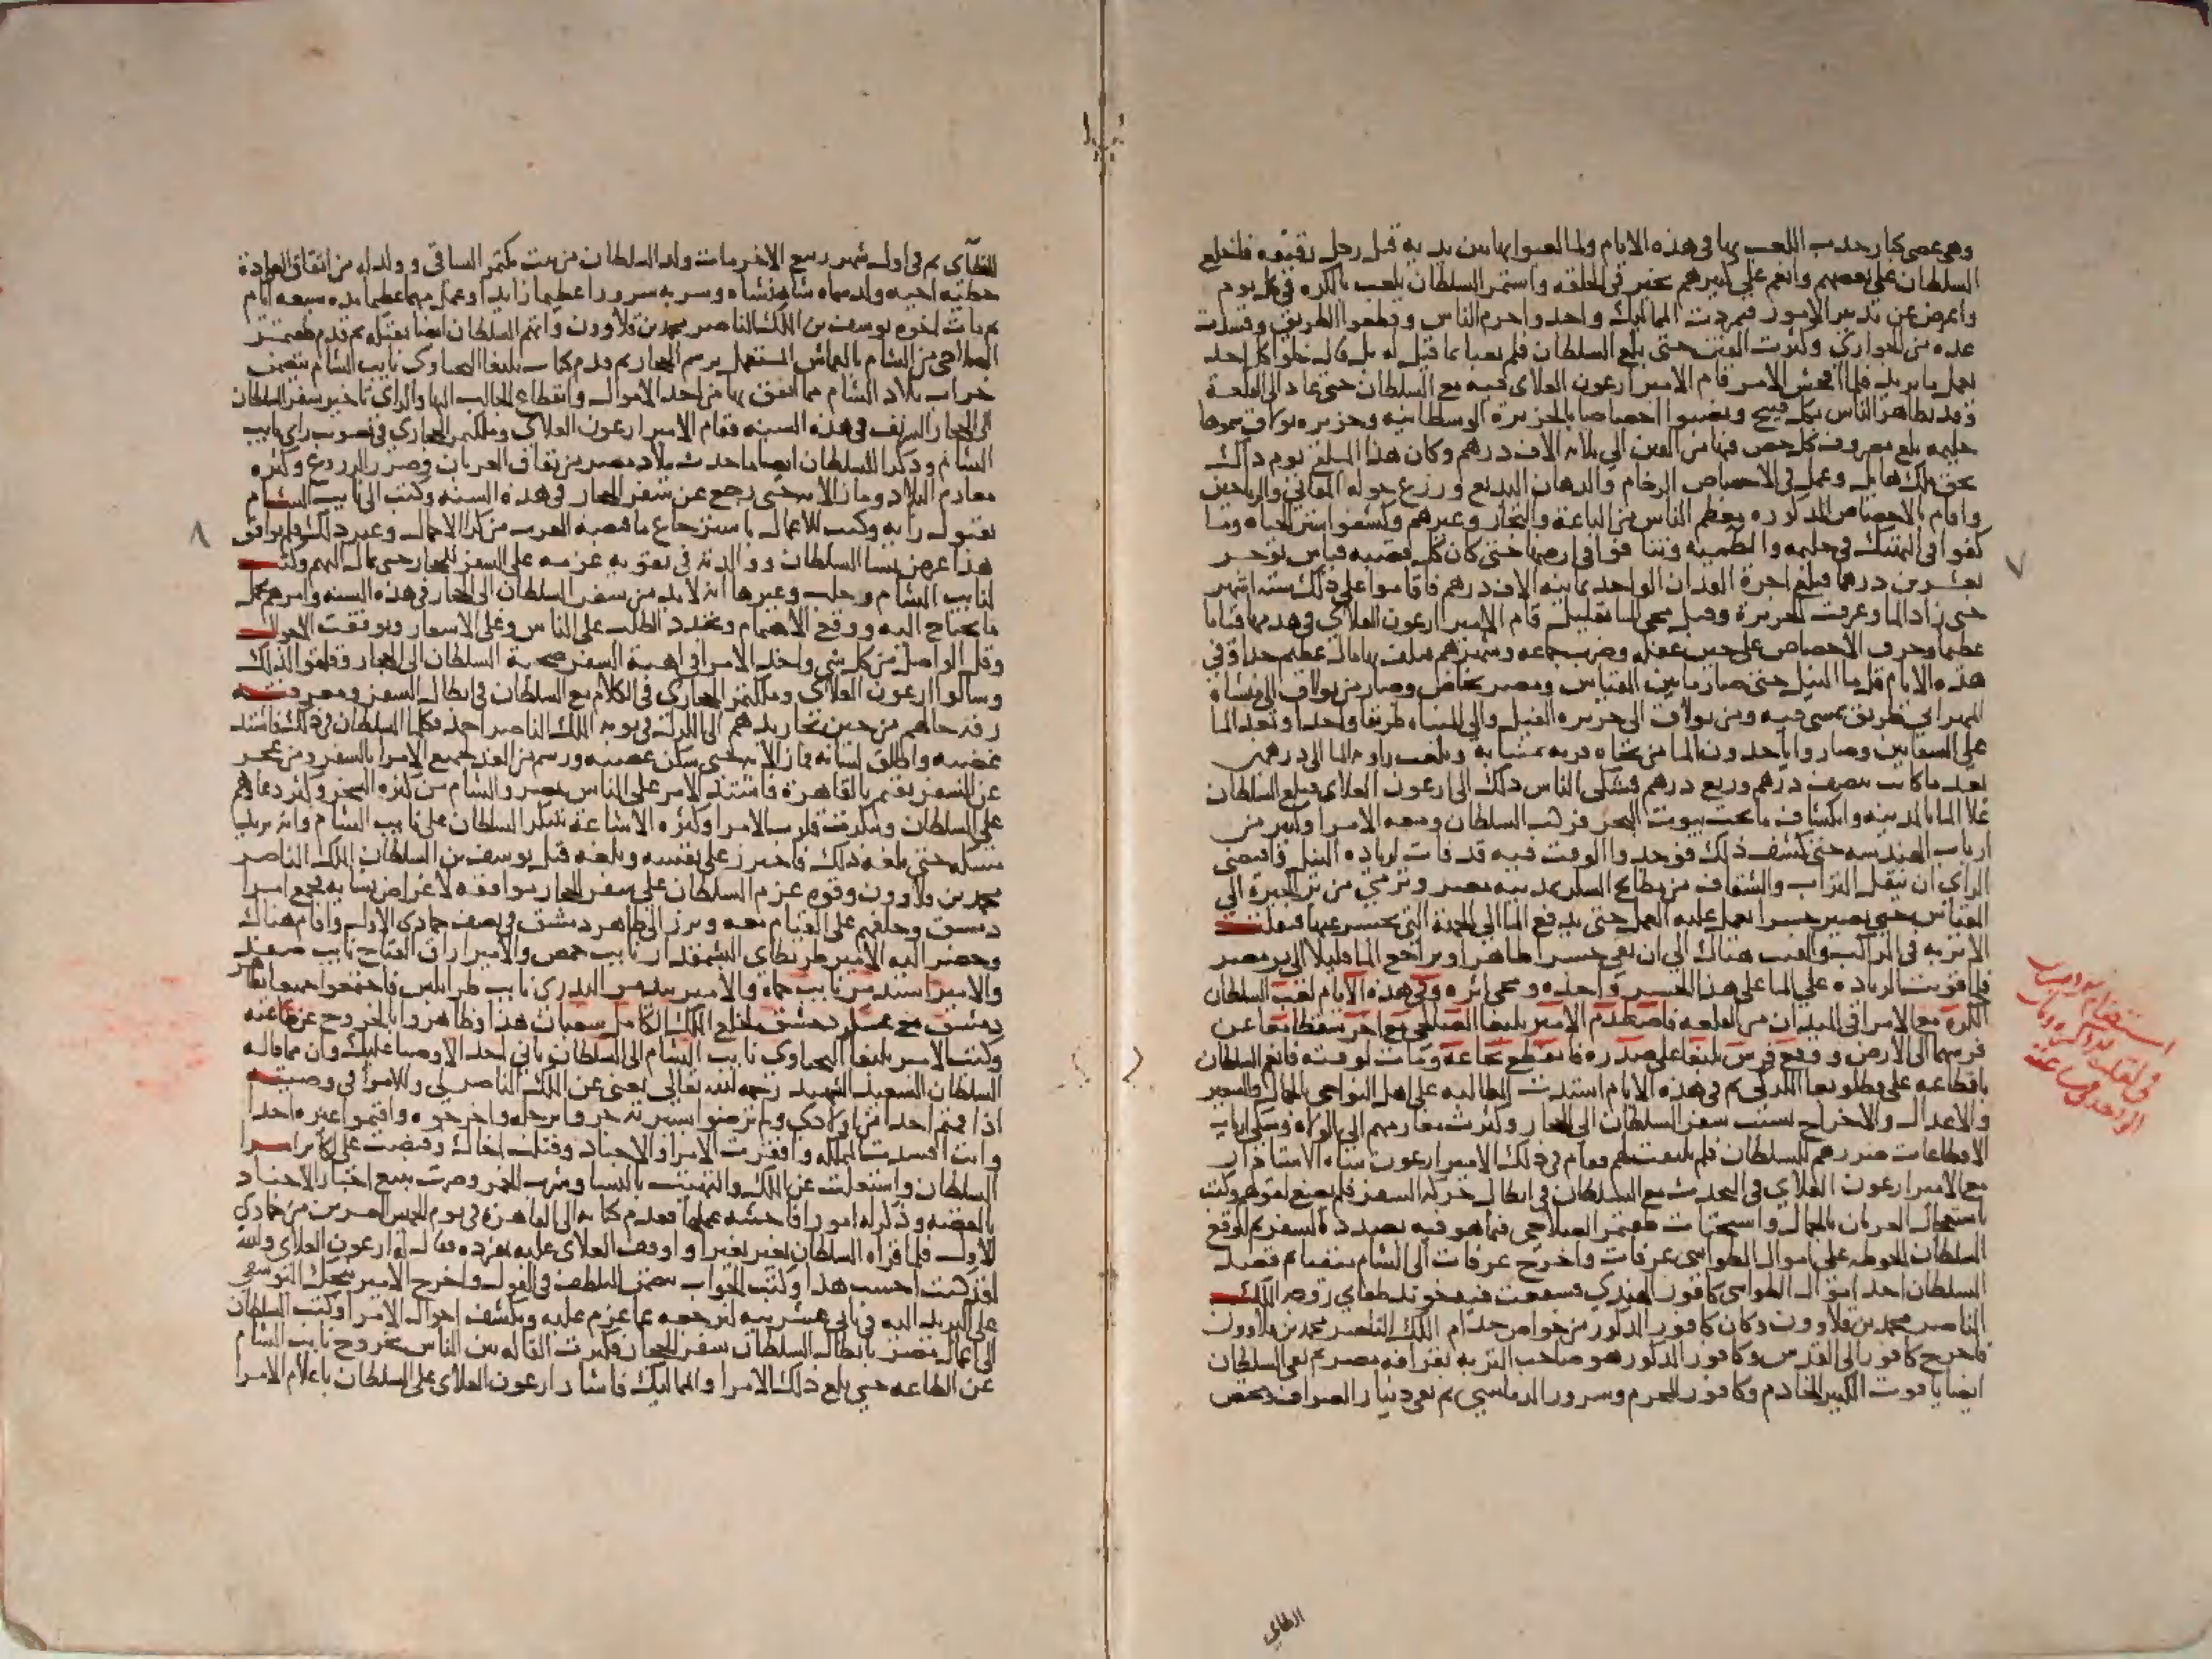 وهي عصي كبار حدث اللعب بها في هذه الايام ولما لعبوا بها بين يديه قتل رجل رفيقه فاخلع
السلطان على بعضهم وانعم على كبيرهم بخبز في الحلقة واستمر السلطان يلعب بالكره في كل يوم
واعرض عن تدبير الامور فتمردت المماليك واخذوا حرم الناس وقطعوا الطريق وفسدت
عده من الجواري وكثرت الفتن حتى بلغ السلطان فلم يعبا بما قيل له بل قال خلوا كل احد
يعمل ما يريد فلما فحش الامر قام الامير ارغون العلاي فيه مع السلطان حتى عاد الى القلعة
وقد تظاهر الناس بكل قبيح ونصبوا اخصاصا بالجزيرة الوسطانيه وجزيرة بولاق سموها
حليمه بلغ مصروف كل خص منها من الفين الى ثلاثه الاف درهم وكان هذا المبلغ يوم ذاك
بحق ملك هايل وعمل في الاخصاص الرخام والدهان البديع وزرع حوله المقاثي والرياحين
واقام بالاخصاص المذكوره معظم الناس من الباعة والتجار وغيرهم وكشفوا ستر الحياء وما
كفوا في التهتك في حليمه والطميه وتنافسوا في ارضها حتى كان كل قصبه قياس توجر
بعشرين درهما فبلغ اجرة الفدان الواحد ثمانيه الاف درهم فاقاموا على ذلك سته اشهر
حتى زاد الما وغرقت الجزيرة وقبل مجي الما بقليل قام الامير ارغون العلاي في هدمها قياما
عظيما وحرق الاخصاص على حين غفله وضرب جماعه وشهرهم فتلف بها مال عظيم جدا وفي
هذه الايام قل ما النيل حتى صار ما بين المقياس ومصر يخاض وصار من بولاق الى منشاة
المهراني طريق يمشى فيه ومن بولاق الى جزيره الفيل والى المنيه طريقا واحدا وبعد الما
على السقايين وصاروا ياخذون الما من تجاه قرية منبابة وبلغت راويه الما الى درهمين
بعد ما كانت بنصف درهم وربع درهم فشكى الناس ذلك الى ارغون العلاي فبلغ السلطان
غلا الما بالمدينه وانكشاف ما تحت بيوت البحر فركب السلطان ومعه الامرا وكثير من
ارباب الهندسه حتى كشف ذلك فوجدوا الوقت فيه قد فات لزياده النيل واقتضى
الراي ان ينقل التراب والشقاف من مطابخ السكر بمدينه مصر وترمي من بر الجيزة الى
المقياس حتى يصير جسرا يعمل عليه العمل حتى يدفع الما الى الجهة التي يحسر عنها فنقلت
الاتربه في المراكب والقيت هناك الى ان بقي جسرا ظاهرا وتراجع الما قليلا الى بر مصر
فلما قويت الزياده علا الما على هذا الجسر واخذه ومحى اثره وفي هذه الايام لعب السلطان
الكره مع الامرا في الميدان من القلعه فاصطدم الامير يلبغا الصالحي مع اخر سقطا معا عن
فرسهما الى الارض ووقع فرس يلبغا على صدره فانقطع نخاعه ومات لوقته فانعم السلطان
باقطاعه على قطلوبغا الكركي ثم في هذه الايام اشتدت المطالبه على اهل النواحي بالجمال والشعير
والاعدال والاخراج بسبب سفر السلطان الى الحجاز وكثرت مغارمهم الى الولاه وشكى ارباب
الاقطاعات ضررهم للسلطان فلم يلتفت لهم فقام في ذلك الامير ارغون شاه الاستادار
مع الامير ارغون العلاي في التحدث مع السلطان في ابطال حركه السفر فلم يصغ لقولهم وكتب
باستعجال العربان بالجمال واستحثات طقتمر الصلاحي فيما هو فيه بصدده السفر ثم اوقع
السلطان الحوطه على اموال الطواشي عرفات واخرج عرفات الى الشام منفيا ثم قصد
السلطان اخذ اموال الطواشي كافور الهندي فشفعت فيه خوند طغاي زوجه الملك
الناصر محمد بن قلاوون وكان كافور المذكور من خواص خدام الملك الناصر محمد بن قلاوون
فاخرج كافور الى القدس وكافور المذكور هو صاحب التربه بقرافه مصر ثم نفى السلطان
ايضا ياقوت الكبير الخادم وكافور المحرم وسرور الدماميني ثم نفى دينار الصواف ومختص
الخطاي
استقطام
الخطاي ثم في اول شهر ربيع الاخر مات ولد السلطان من بنت بكتمر الساقي وولد له من اتفاق العوادة
حظيه اخيه ولد سماه شاهنشاه وسر به سرورا عظيما زايدا وعمل مهما عظيما مده سبعه ايام
ثم مات اخوه يوسف بن الملك الناصر محمد بن قلاوون واتهم السلطان ايضا بقتله ثم قدم طقتمر
الصلاحي من الشام بالقماش المستعمل برسم الحجاز ثم قدم كتاب يلبغا اليحياوي نايب الشام يتضمن
خراب بلاد الشام مما اتفق بها من اخذ الاموال وانقطاع الجالب اليها والراي تاخير سفر السلطان
الى الحجاز الشريف في هذه السنه فقام الامير ارغون العلاي وملكتمر الحجازي في تصويب راي نايب
الشام وذكرا للسلطان ايضا ما حدث ببلاد مصر من نفاق العربان وضرر الزروع وكثره
مغارم البلاد وما زالا به حتى رجع عن سفر الحجاز في هذه السنه وكتب الى نايب الشام
بقبول رايه وكتب للاعمال باسترجاع ما قبضه العرب من كرا الاحمال وغير ذلك فلم يوافق
هذا غرض نسا السلطان ووالدته في تقويه عزمه على السفر للحجاز حتى مال اليهم وكتب
لنايب الشام وحلب وغيرها انه لابد من سفر السلطان الى الحجاز في هذه السنه وامرهم بحمل
ما يحتاج اليه ووقع الاهتمام وتجدد الطلب على الناس وغلى الاسعار وتوقفت الاحوال
وقل الواصل من كل شي واخذ الامرا في اهبة السفر صحبة السلطان الى الحجاز وقلقوا لذلك
وسالوا ارغون العلاي وملكتمر الحجازي في الكلام مع السلطان في ابطال السفر ومعرفته
رقه حالهم من حين تجاريدهم الى الكرك في نوبة الملك الناصر احمد فكلما السلطان في ذلك فاشتد
غضبه واطلق لسانه فما زالا به حتى سكن غضبه ورسم من الغد لجميع الامرا بالسفر ومن عجز
عن السفر يقيم بالقاهرة فاشتد الامر على الناس بمصر والشام من كثره السخر وكثر دعاوهم
على السلطان وتنكرت قلوب الامرا وكثره الاشاعة بتنكر السلطان على نايب الشام وانه يريد
مسكه حتى بلغه ذلك فاحترز على نفسه وبلغه قتل يوسف بن السلطان الملك الناصر
محمد بن قلاوون وقوه عزم السلطان على سفر الحجاز موافقه لاغراض نسايه فجمع امرا
دمشق وحلفهم على القيام معه وبرز الى ظاهر دمشق في نصف جمادي الاول واقام هناك
وحضر اليه الامير طرنطاي البشمقدار نايب حمص والامير اراق الفتاح نايب صفد
والامير اسندمر نايب حماة والامير بيدمر البدري نايب طرابلس فاجتمعوا جميعا ظاهر
دمشق مع عسكر دمشق لخلع الملك الكامل شعبان هذا وتظاهروا بالخروج عن طاعته
وكتب الامير يلبغا اليحياوي نايب الشام الى السلطان باني احد الاوصيا عليك وان مما قاله
السلطان السعيد الشهيد رحمه الله تعالى يعني عن الملك الناصر لي وللامرا في وصيته
اذا اقمتم احدا من اولادي ولم ترضوا سيرته جروه برجله واخرجوه واقيموا غيره احدا
وانت افسدت المملكه وافقرت الامرا والاجناد وقتلت اخاك وقبضت على اكابر امرا
السلطان واشتغلت عن الملك والتهيت بالنسا وشرب الخمر وصرت تبيع اخباز الاجناد
بالفضه وذكر له امورا فاحشه عملها فقدم كتابه الى القاهرة في يوم الجمعه العشرين من جمادي
الاول فلما قراه السلطان تغير تغيرا واوقف العلاي عليه بمفرده فقال له ارغون العلاي والله
لقد كنت احسب هذا وكتب الجواب بتضمن التلطف في القول واخرج الامير منجك اليوسفي
على البريد اليه في ثاني عشرينه ليرجعه عما عزم عليه ويكشف احوال الامرا وكتب السلطان
الى اعمال مصر بابطال السلطان سفر الحجاز فكثرت القاله بين الناس بخروج نايب الشام
عن الطاعه حتى بلغ ذلك الامرا والمماليك فاشار ارغون العلاي على السلطان باعلام الامرا